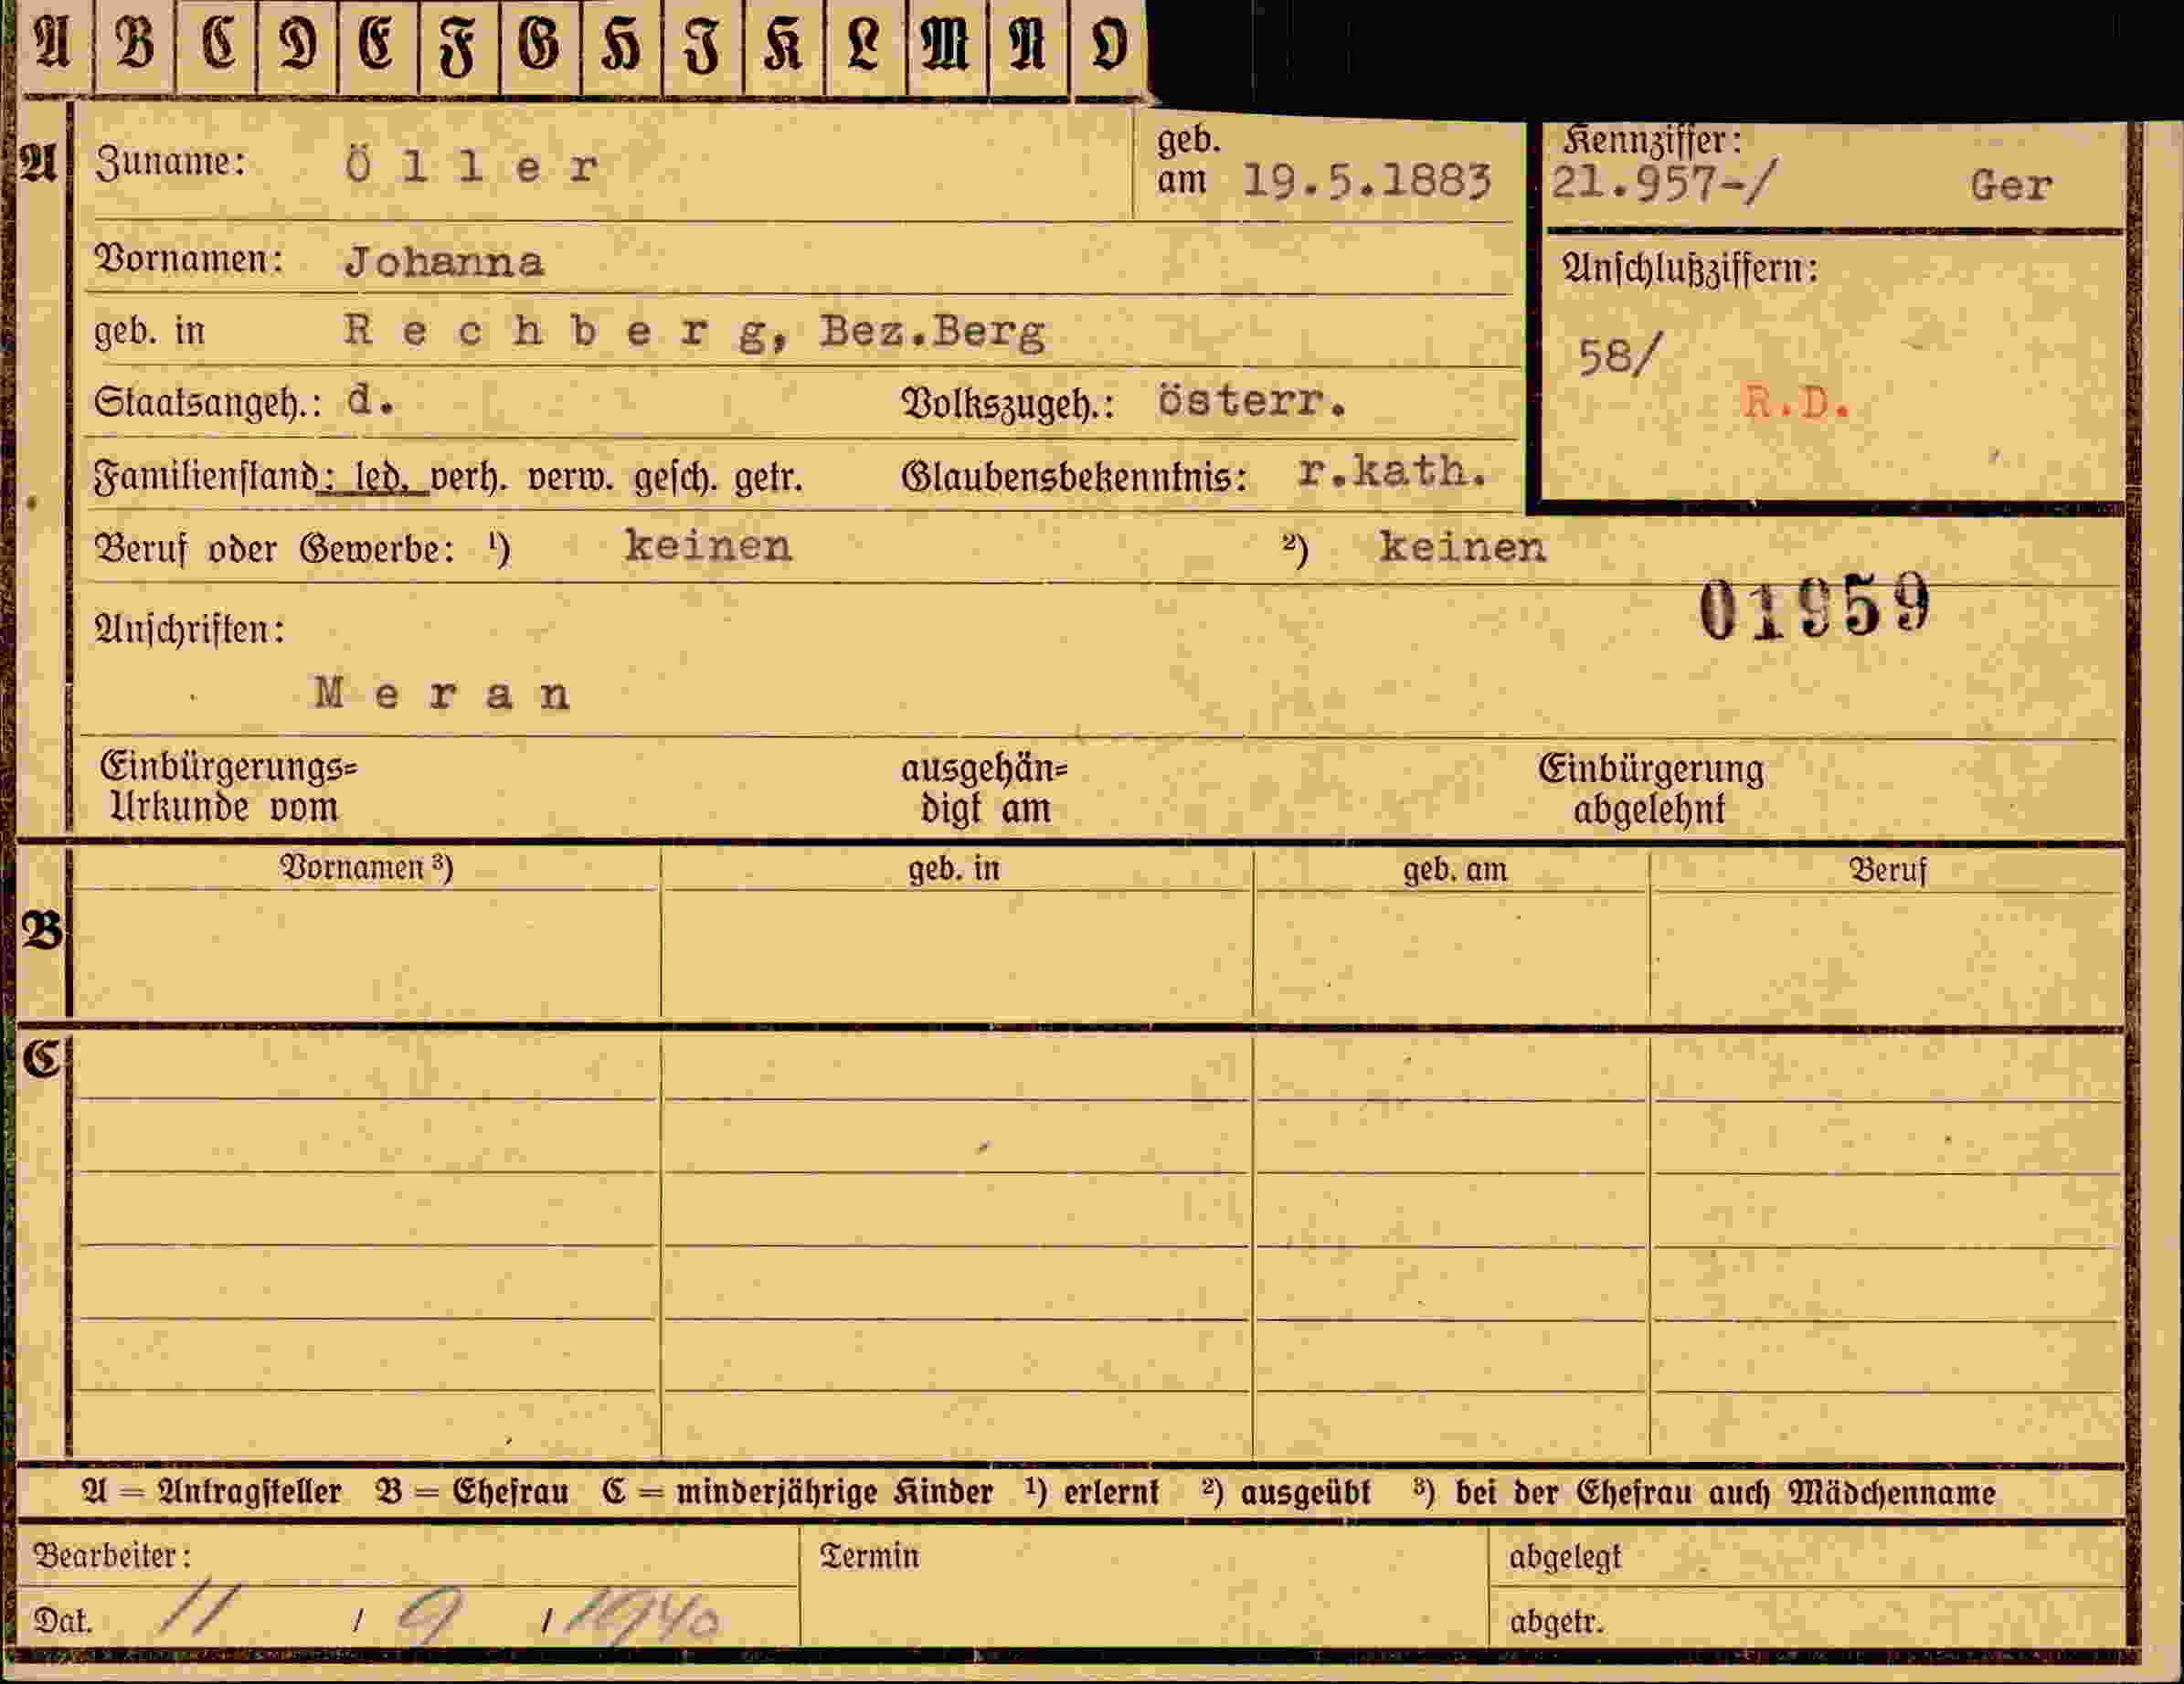 A B C D E F G H J K L M N O
A Zuname: Öller geb. am 19.5.1883 Kennziffer: 21.957-/ Ger
Vornamen: Johanna Anschlußziffern:
geb. in Rechberg, Bez.Berg 58/
Staatsangeh.: d. Volkszugeh.: österr. R.D.
Familienstand: led. verh. verw. gesch. getr. Glaubensbekenntnis: r.kath.
Beruf oder Gewerbe: ¹) keinen ²) keinen
01959
Anschriften:
Meran
Einbürgerungs= ausgehän= Einbürgerung
Urkunde vom digt am abgelehnt
Vornamen ³) geb. in geb. am Beruf
B
C
A = Antragsteller B = Ehefrau C = minderjährige Kinder ¹) erlernt ²) ausgeübt ³) bei der Ehefrau auch Mädchenname
Bearbeiter: Termin abgelegt
Dat. 11 / 9 / 1940 abgetr.